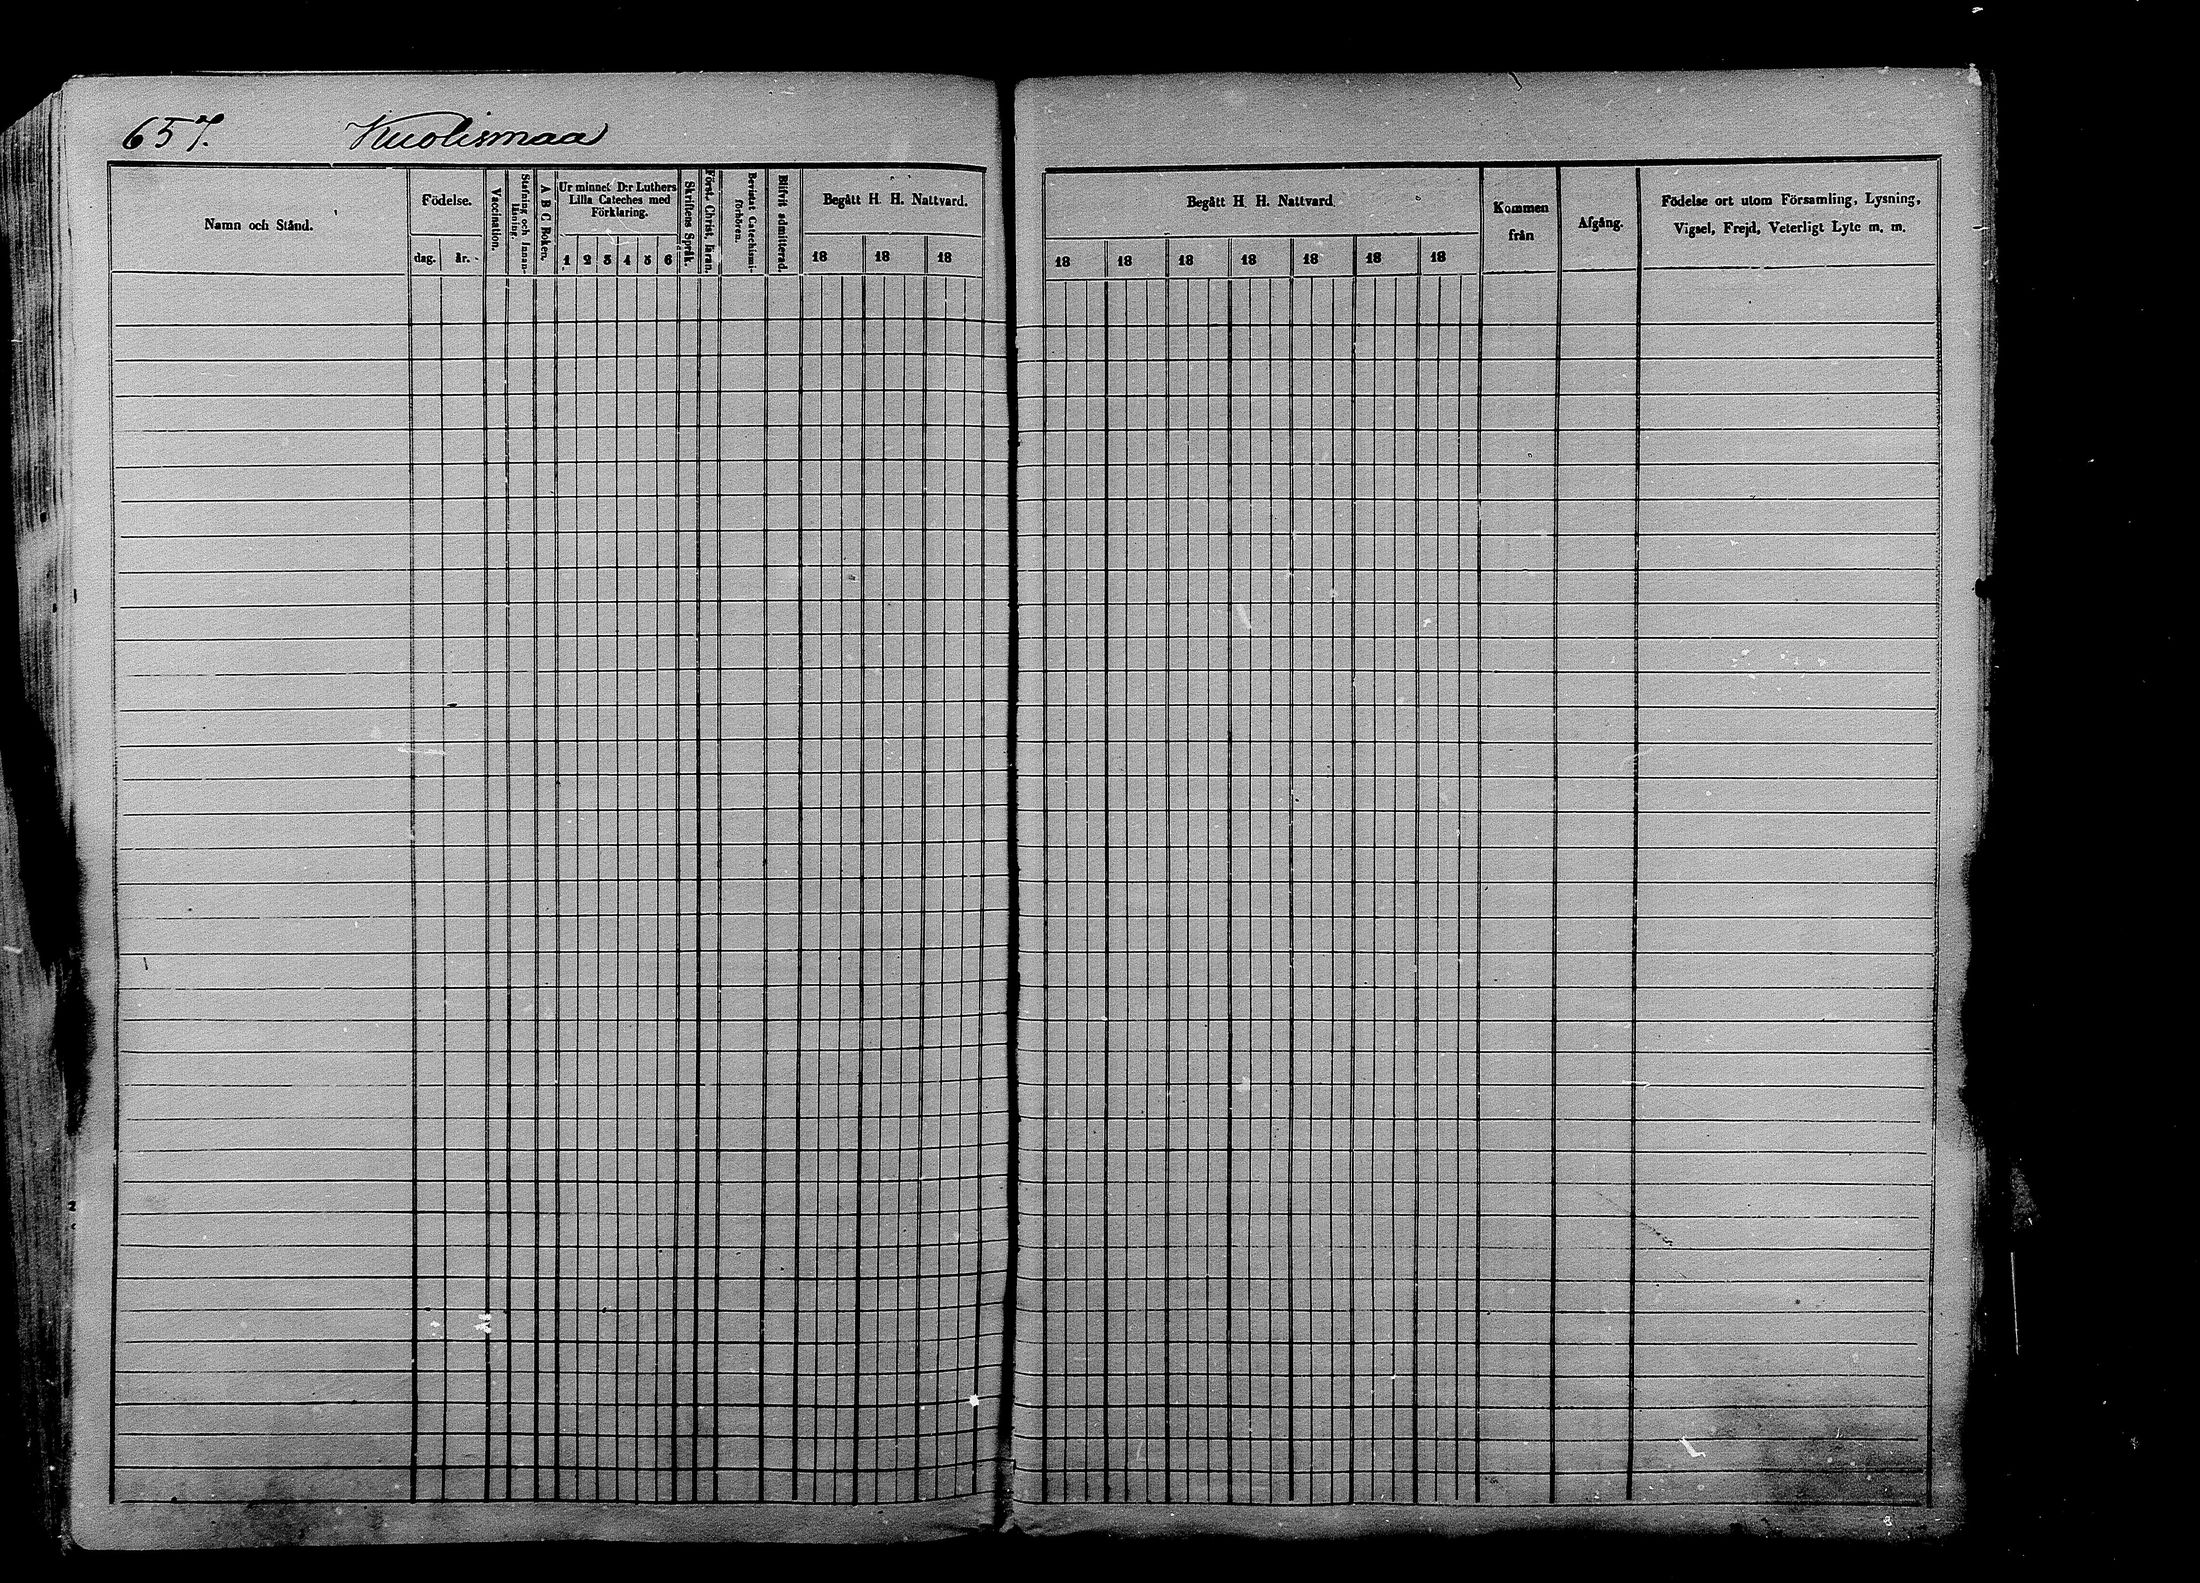 657. Kuolismaa
Namn och Stånd.
Födelse.
dag.
år.
Vaccination.
Stafning och Innan-
läsning.
A B C Boken.
Ur minnet D:r Luthers
Lilla Cateches med
Förklaring.
1 2 3 4 5 6
Skriftens Språk.
Först. Christ. läran.
Bevistat Catechismi-
förhören.
Blifvit admitterad.
Begått H. H. Nattvard.
18 18 18
Begått H. H. Nattvard.
18 18 18 18 18 18 18
Kommen
från
Afgång.
Födelse ort utom Församling, Lysning,
Vigsel, Frejd, Veterligt Lyte m. m.